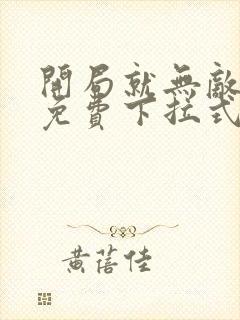 開局就無敵
免費下拉式
黃蓓佳